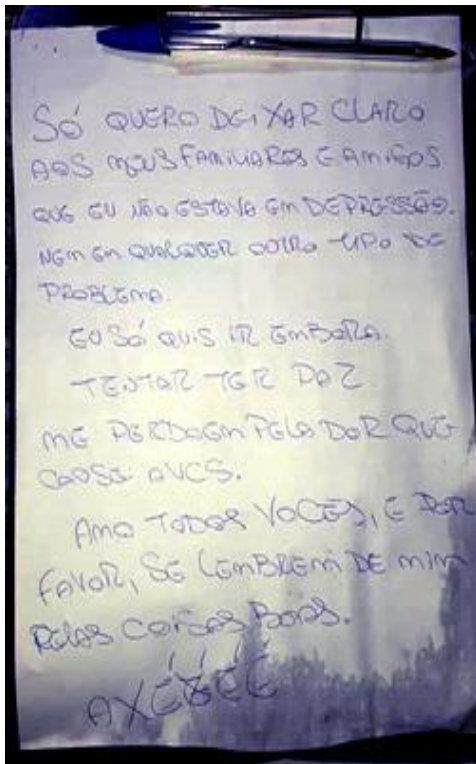 SÓ QUERO DEIXAR CLARO
AOS MEUS FAMILIARES E AMIGOS
QUE EU NÃO ESTAVA EM DEPRESSÃO.
NEM EM QUALQUER OUTRO TIPO DE
PROBLEMA.
EU SÓ QUIS IR EMBORA.
TENTAR TER PAZ
ME PERDOEM PELA DOR QUE
CAUSEI A VCS.
AMO TODOS VOCÊS, E POR
FAVOR, SE LEMBREM DE MIM
PELAS COISAS BOAS.
AXÉÉÉÉ